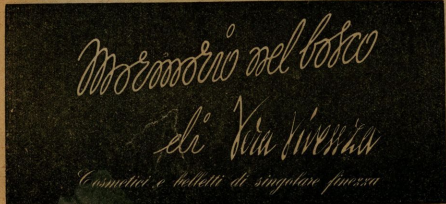 Mormorio nel bosco
di Vera Vivenza
Cosmetici e belletti di singolare finezza